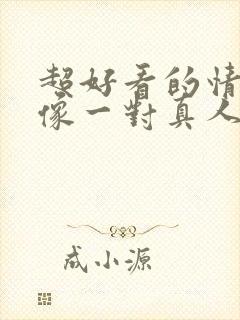 超好看的情
像一對真人
成小源